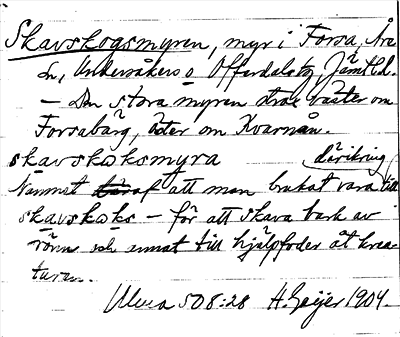 Skavskogsmyren, myr i Forsa, Åre
sn, Undersåkers o Offerdals tg, Jämtld.
– Den stora myren strax väster om
Forsaberg, öster om Kvarnån.
skavskoksmyra däríkring
Namnet af att man brukat vara till
skavskoks – för att skava bark av
rönn och annat till hjälpfoder åt krea-
turen.
Ulma 508:28 H. Geijer 1904.